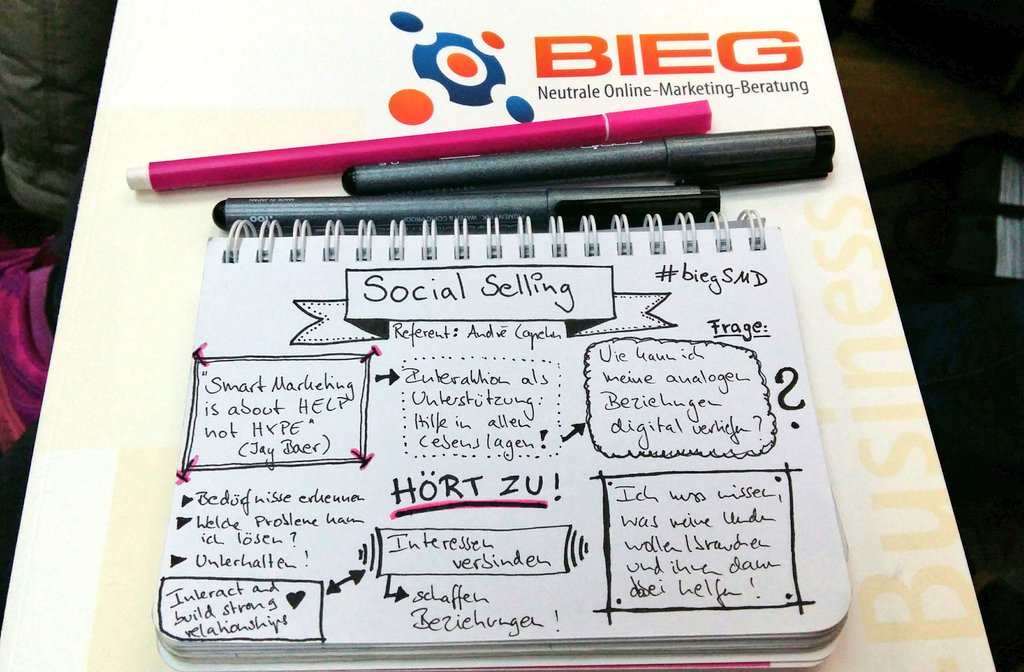 BIEG
Neutrale Online-Marketing-Beratung
Business
Social Selling
#biegSMD
Referent: André
Frage:
"Smart Marketing
is about HELP
not HYPE"
(Jay Baer)
Interaktion als
Unterstützung.
Hilfe in allen
Lebenslagen!
Wie kann ich
meine analogen
Beziehungen
digital vertiefen?
?
Bedürfnisse erkennen
Welche Probleme kann
ich lösen?
Unterhalten!
HÖRT ZU!
Interessen
verbinden
schaffen
Beziehungen!
Interact and
build strong
relationships
Ich muss wissen,
was meine Kunden
wollen/brauchen
und ihnen dann
dabei helfen!